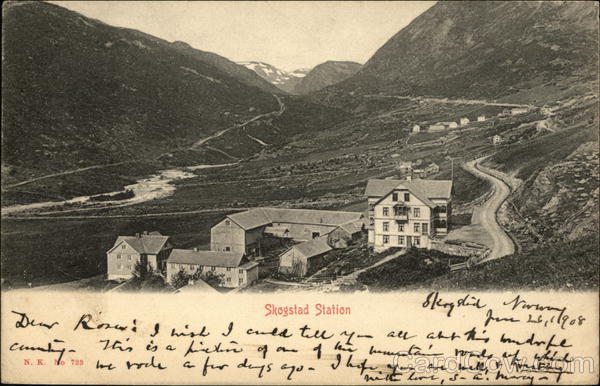 Skogstad Station
Skogstad Norway
June 26, 1908
Dear Rosco: I wish I could tell you all about this wonderful
country. This is a picture of one of the mountain roads on which
N. K. No 723
we rode a few days ago. I hope you are well,
with love,
CardCow.com